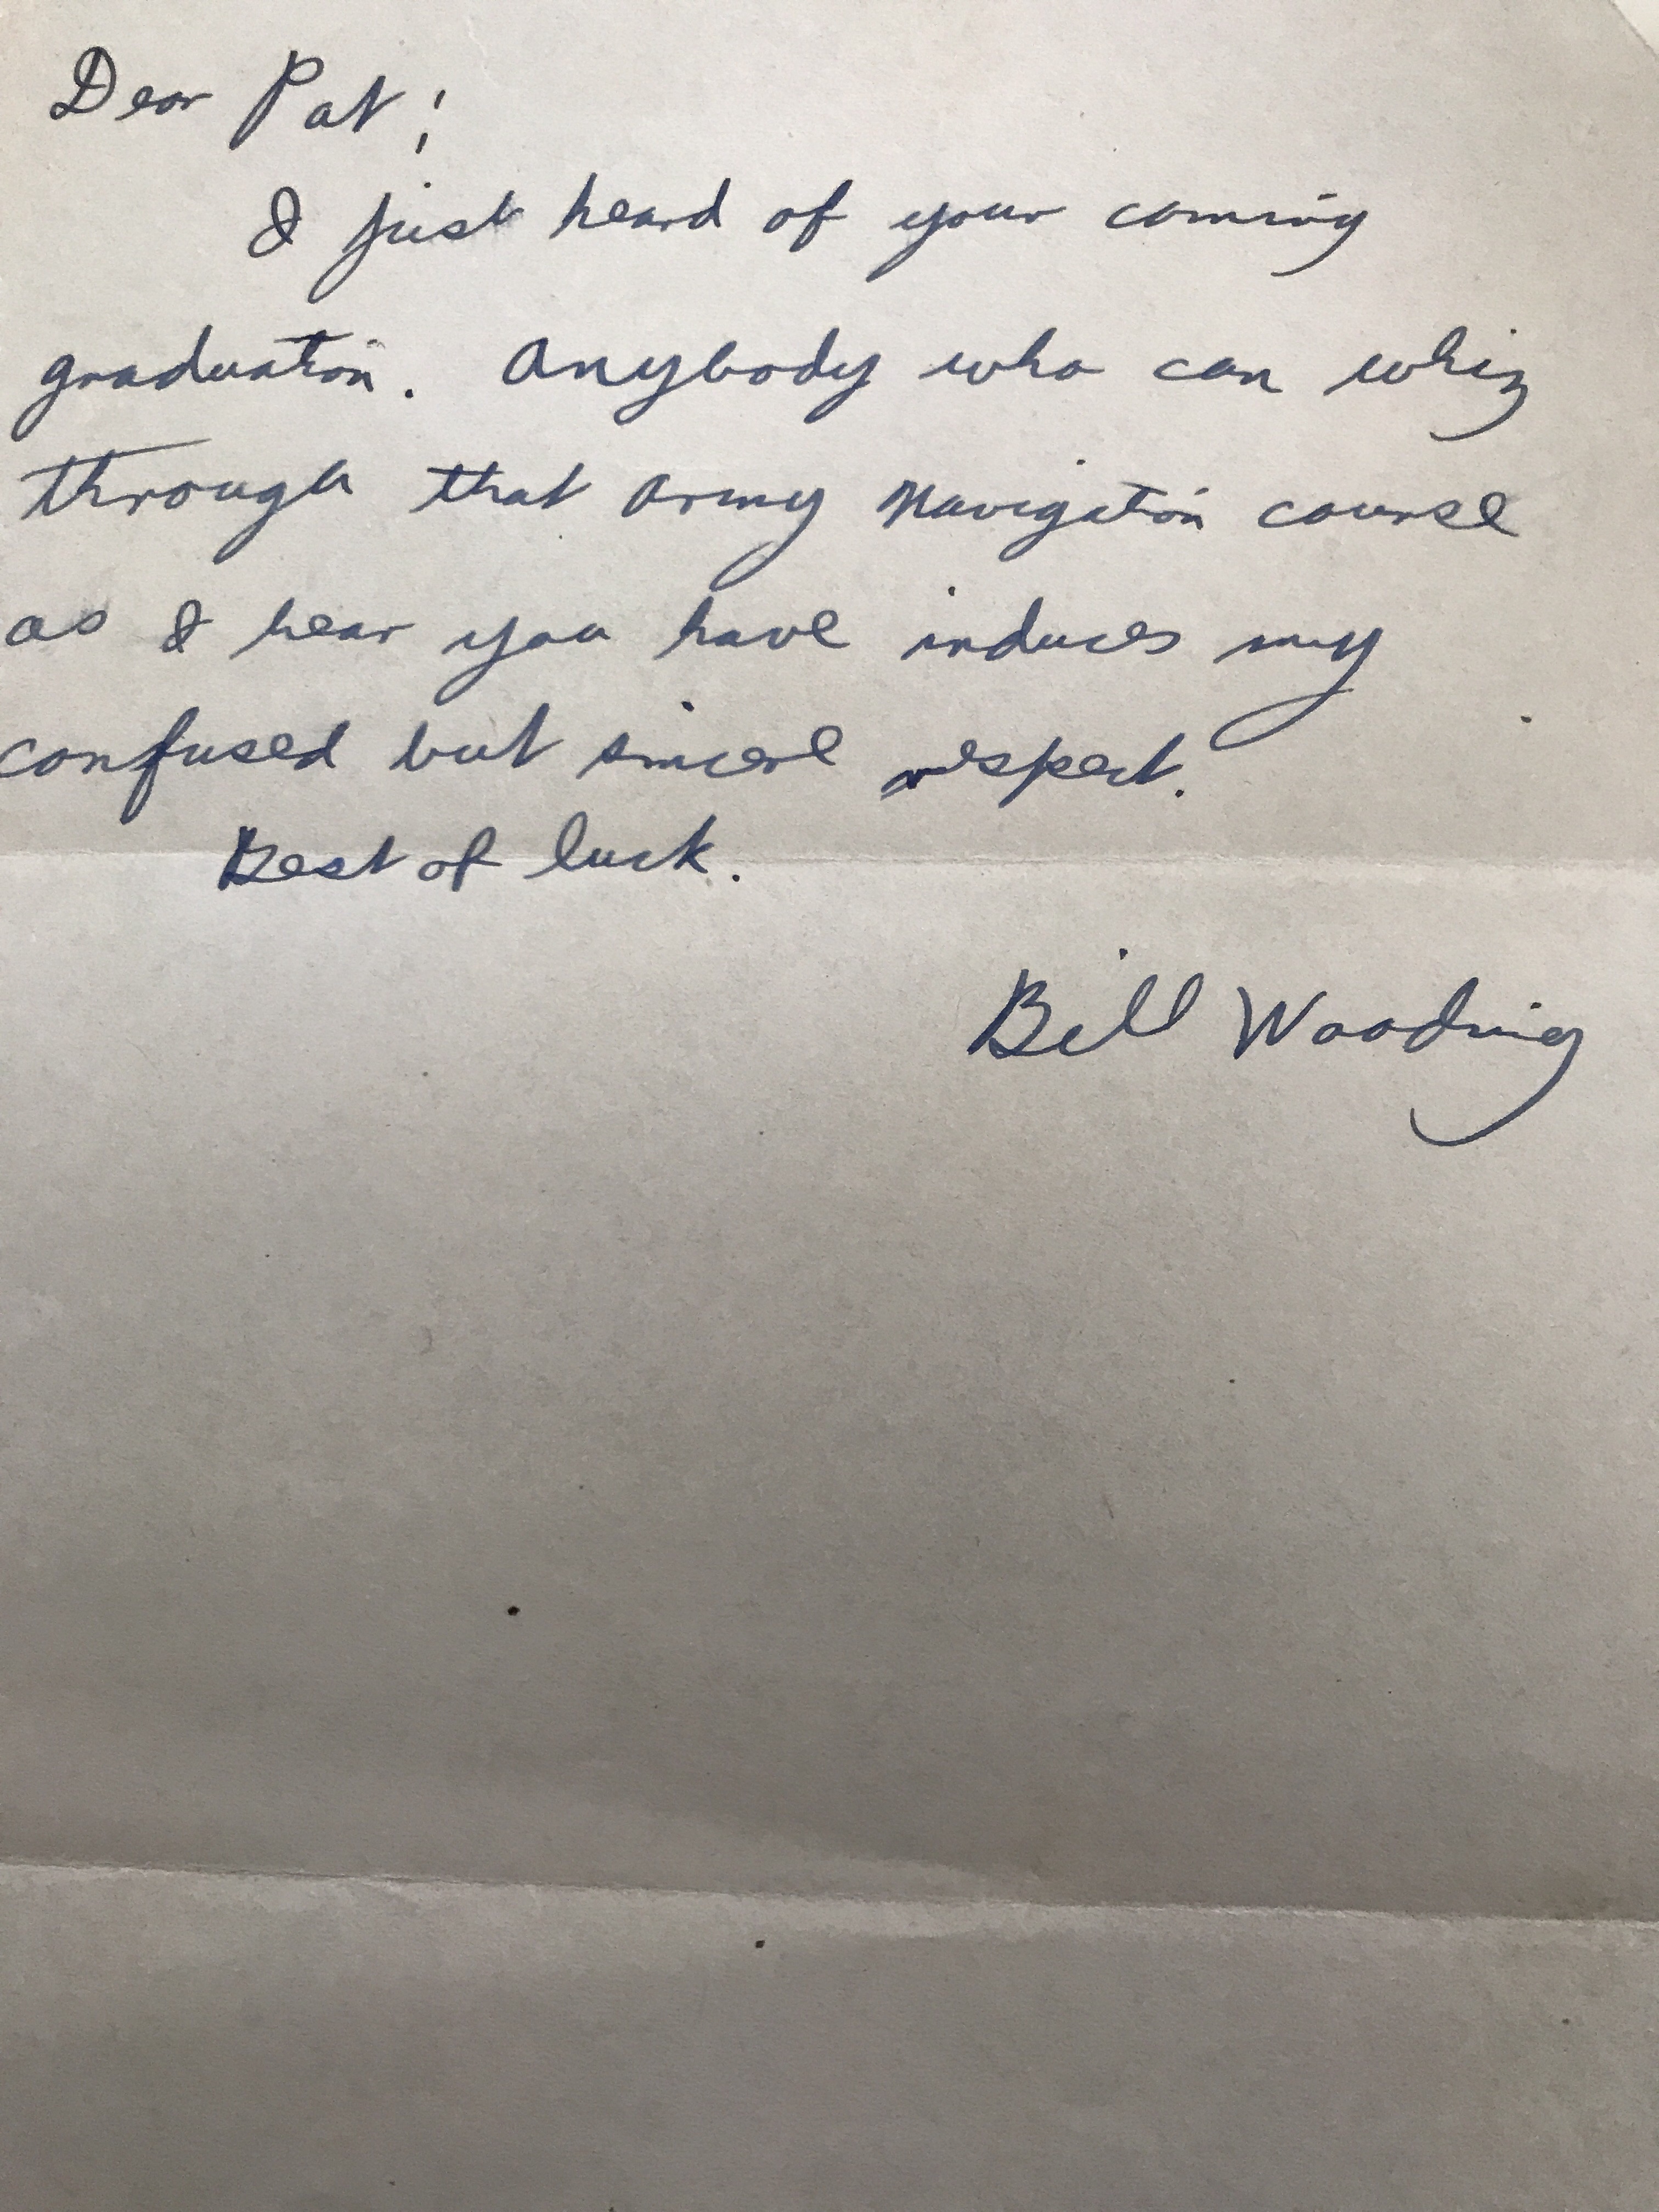 Dear Pat;
I just heard of your coming
graduation. Anybody who can whiz
through that Army Navigation course
as I hear you have induces my
confused but sincere respect.
Best of luck.
Bill Wooding